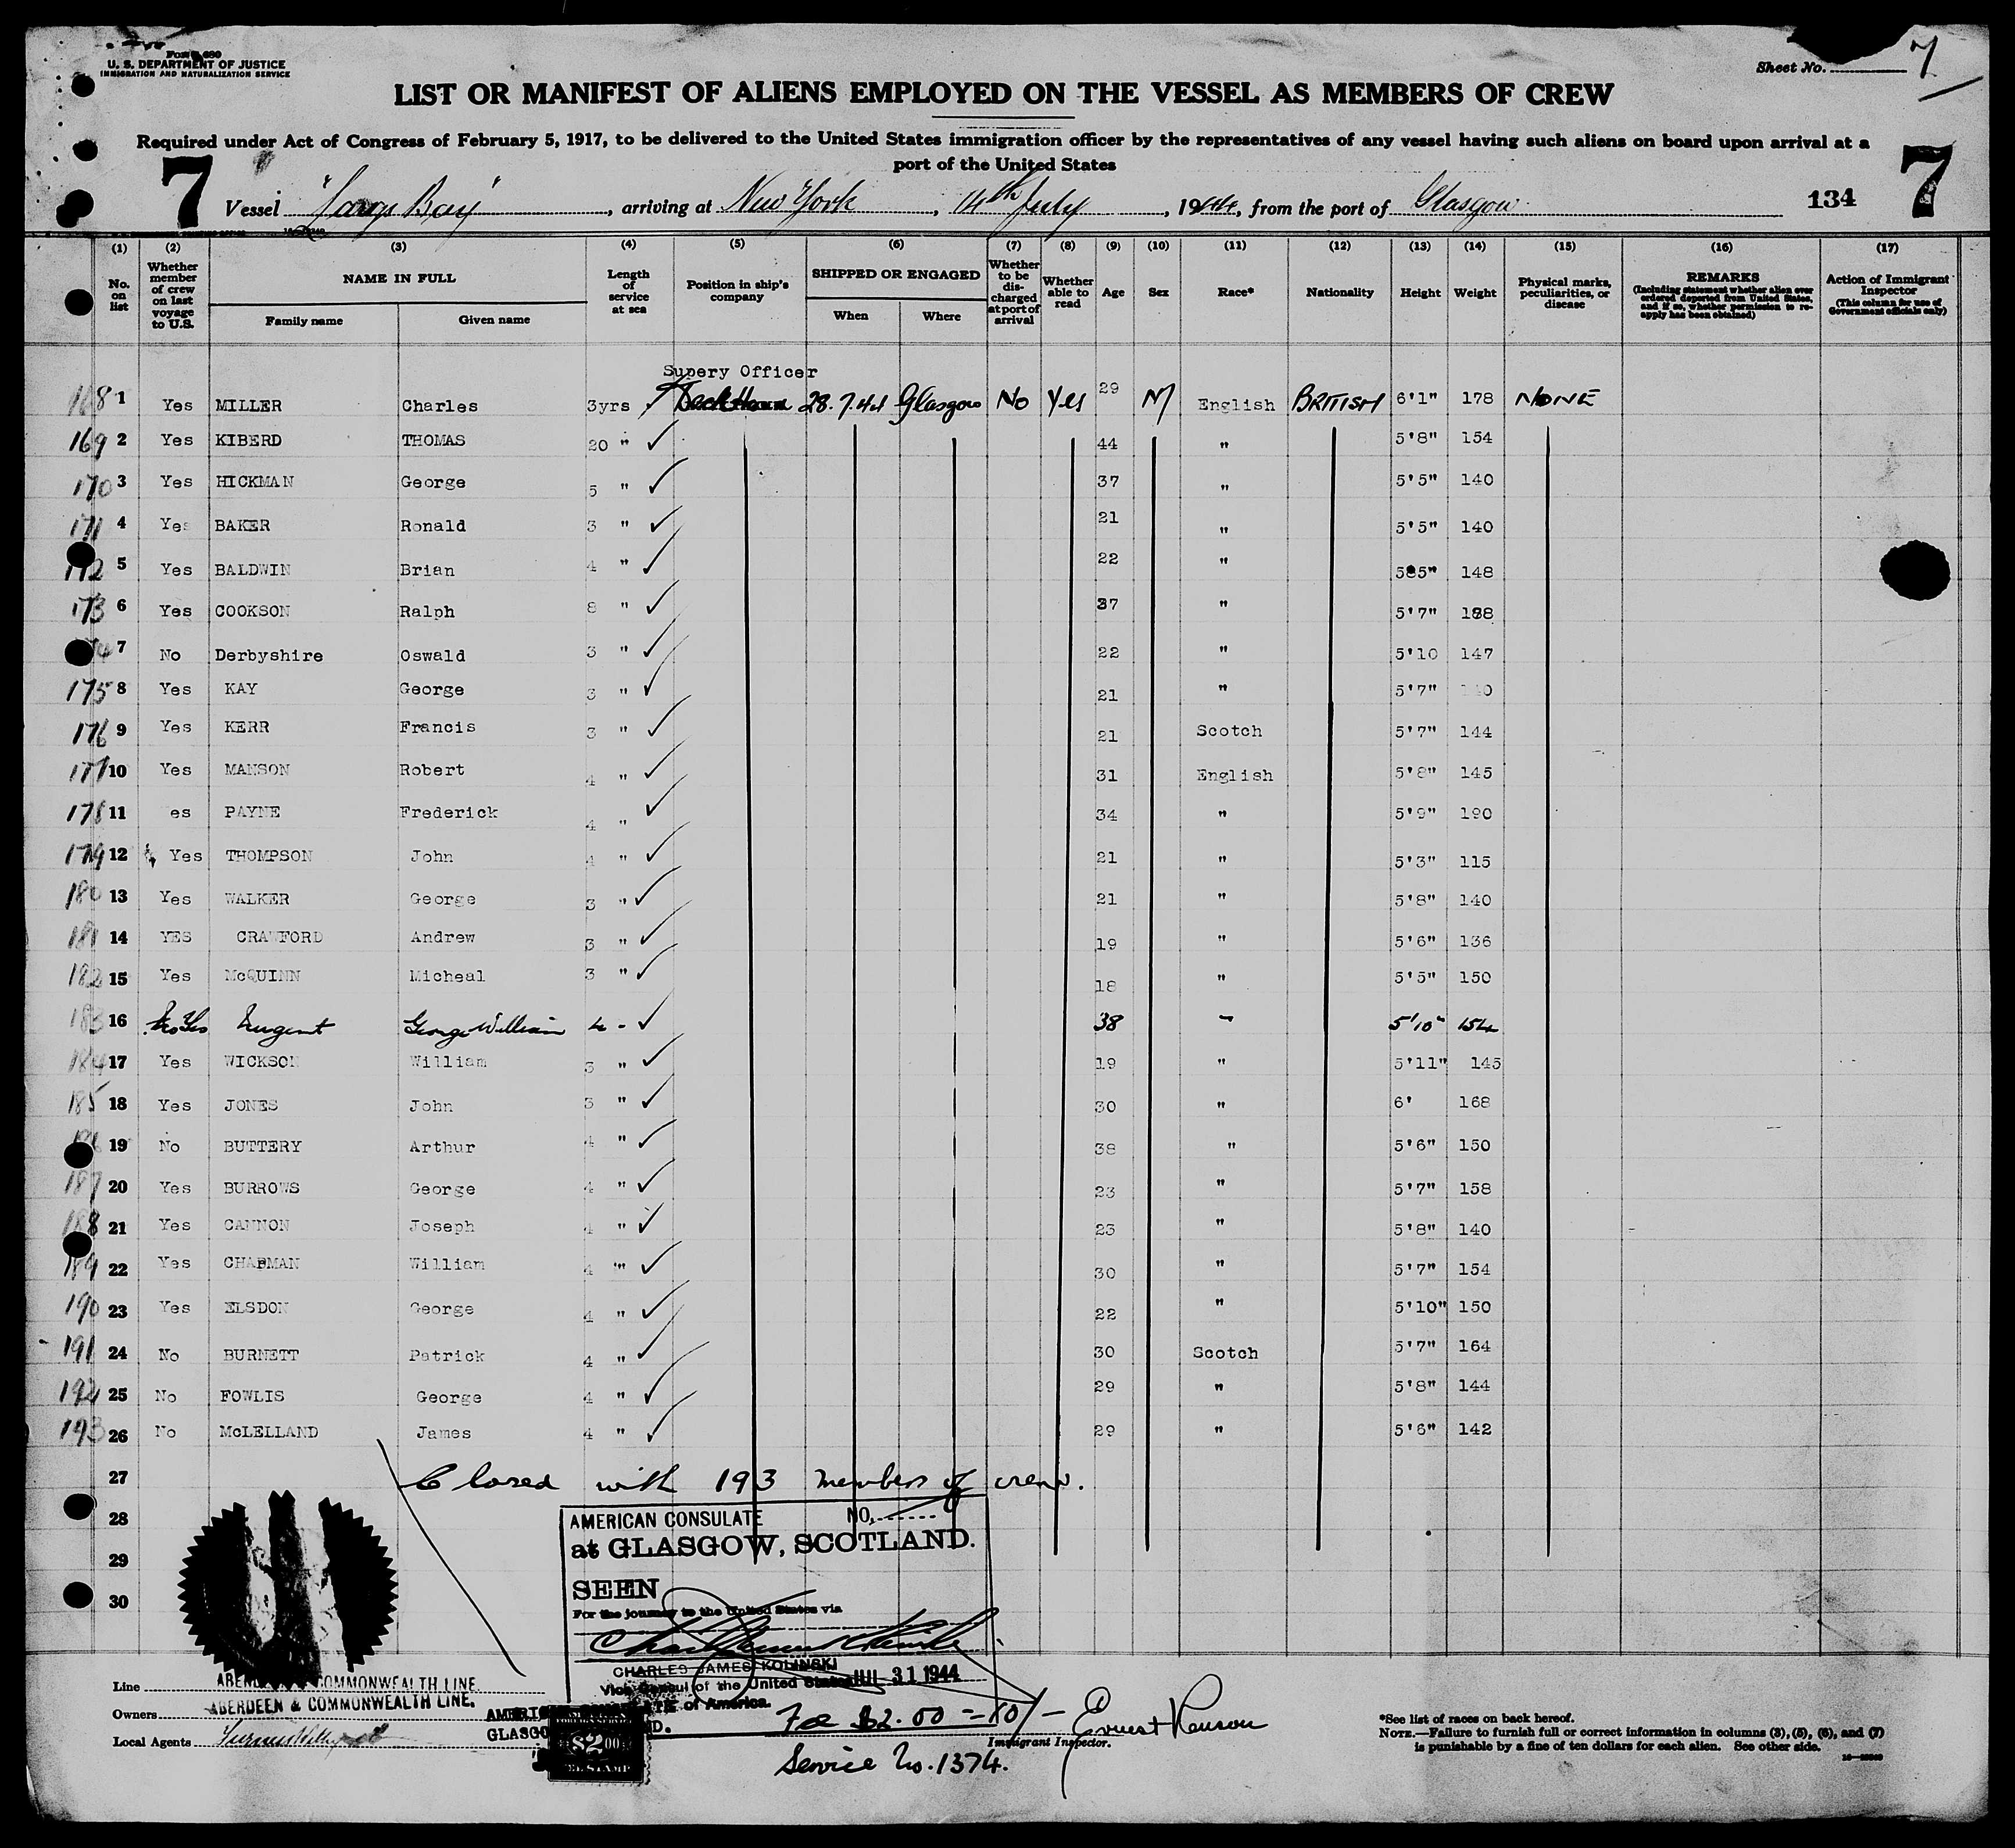 Form 680
U. S. DEPARTMENT OF JUSTICE
IMMIGRATION AND NATURALIZATION SERVICE
Sheet No. 7
LIST OR MANIFEST OF ALIENS EMPLOYED ON THE VESSEL AS MEMBERS OF CREW
Required under Act of Congress of February 5, 1917, to be delivered to the United States immigration officer by the representatives of any vessel having such aliens on board upon arrival at a
port of the United States
7 Vessel "Largs Bay", arriving at New York, 14th July, 1944, from the port of Glasgow 134 7
(1) (2) (3) (4) (5) (6) (7) (8) (9) (10) (11) (12) (13) (14) (15) (16) (17)
No. on list
Whether member of crew on last voyage to U.S.
NAME IN FULL
Family name
Given name
Length of service at sea
Position in ship's company
SHIPPED OR ENGAGED
When
Where
Whether to be discharged at port of arrival
Whether able to read
Age
Sex
Race*
Nationality
Height
Weight
Physical marks, peculiarities, or disease
REMARKS
(Including statement whether alien ever ordered deported from United States, and if so, whether permission to reapply has been obtained)
Action of Immigrant Inspector
(This column for use of Government officials only)
Supery Officer
168 1 Yes MILLER Charles 3yrs Deck Hand 28.7.44 Glasgow No Yes 29 M English BRITISH 6'1" 178 NONE
169 2 Yes KIBERD THOMAS 20 " 44 " 5'8" 154
170 3 Yes HICKMAN George 5 " 37 " 5'5" 140
171 4 Yes BAKER Ronald 3 " 21 " 5'5" 140
172 5 Yes BALDWIN Brian 4 " 22 " 5'5" 148
173 6 Yes COOKSON Ralph 8 " 37 " 5'7" 188
7 No Derbyshire Oswald 3 " 22 " 5'10 147
175 8 Yes KAY George 3 " 21 " 5'7" 140
176 9 Yes KERR Francis 3 " 21 Scotch 5'7" 144
177 10 Yes MANSON Robert 4 " 31 English 5'8" 145
178 11 es PAYNE Frederick 4 " 34 " 5'9" 190
179 12 Yes THOMPSON John 4 " 21 " 5'3" 115
180 13 Yes WALKER George 3 " 21 " 5'8" 140
181 14 YES CRAWFORD Andrew 3 " 19 " 5'6" 136
182 15 Yes McQUINN Micheal 3 " 18 " 5'5" 150
183 16 No Yes Nugent George William 4 - 38 " 5'10" 154
184 17 Yes WICKSON William 3 " 19 " 5'11" 145
185 18 Yes JONES John 3 " 30 " 6' 168
186 19 No BUTTERY Arthur 4 " 38 " 5'6" 150
187 20 Yes BURROWS George 4 " 23 " 5'7" 158
188 21 Yes CANNON Joseph 4 " 23 " 5'8" 140
189 22 Yes CHAPMAN William 4 " 30 " 5'7" 154
190 23 Yes ELSDON George 4 " 22 " 5'10" 150
191 24 No BURNETT Patrick 4 " 30 Scotch 5'7" 164
192 25 No FOWLIS George 4 " 29 " 5'8" 144
193 26 No McLELLAND James 4 " 29 " 5'6" 142
27 Closed with 193 members of crew.
28
29
30
AMERICAN CONSULATE NO.
at GLASGOW, SCOTLAND.
SEEN
For the journey to the United States via
CHARLES JAMES KOLINSKI
Vice Consul of the United States JUL 31 1944
of America.
Fee $2.00 = 10/-
Service No. 1374.
Line ABERDEEN & COMMONWEALTH LINE.
Owners ABERDEEN & COMMONWEALTH LINE.
Local Agents
$2.00
Immigrant Inspector.
*See list of races on back hereof.
NOTE.—Failure to furnish full or correct information in columns (3), (5), (6), and (7)
is punishable by a fine of ten dollars for each alien. See other side.